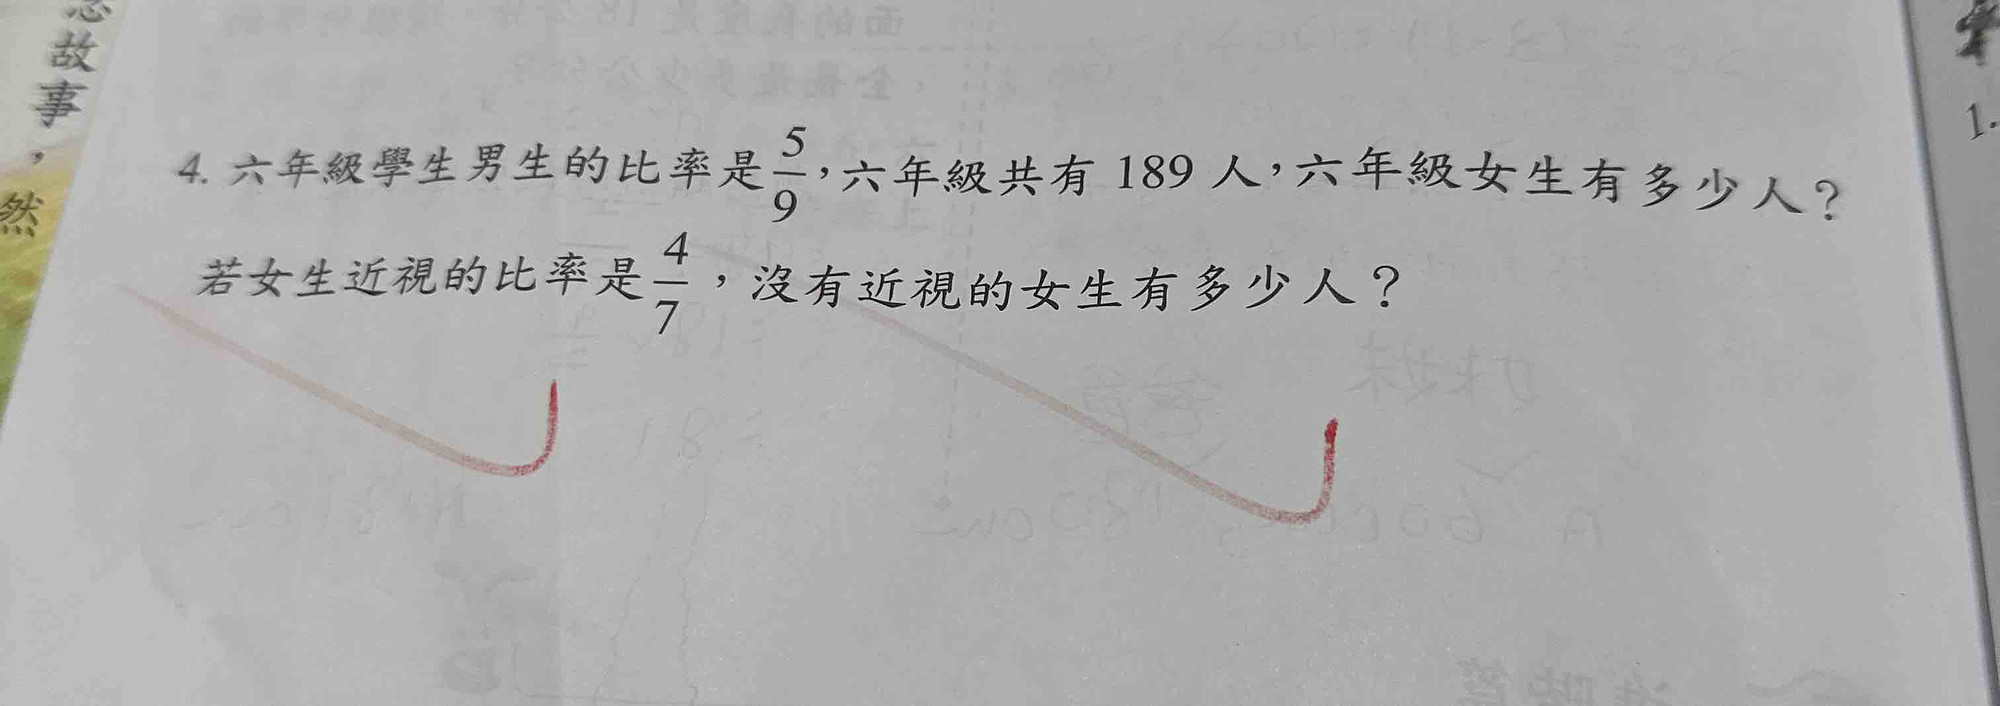 故事,
然
4. 六年級學生男生的比率是5/9,六年級共有 189 人,六年級女生有多少人?
若女生近視的比率是4/7,沒有近視的女生有多少人?
1.